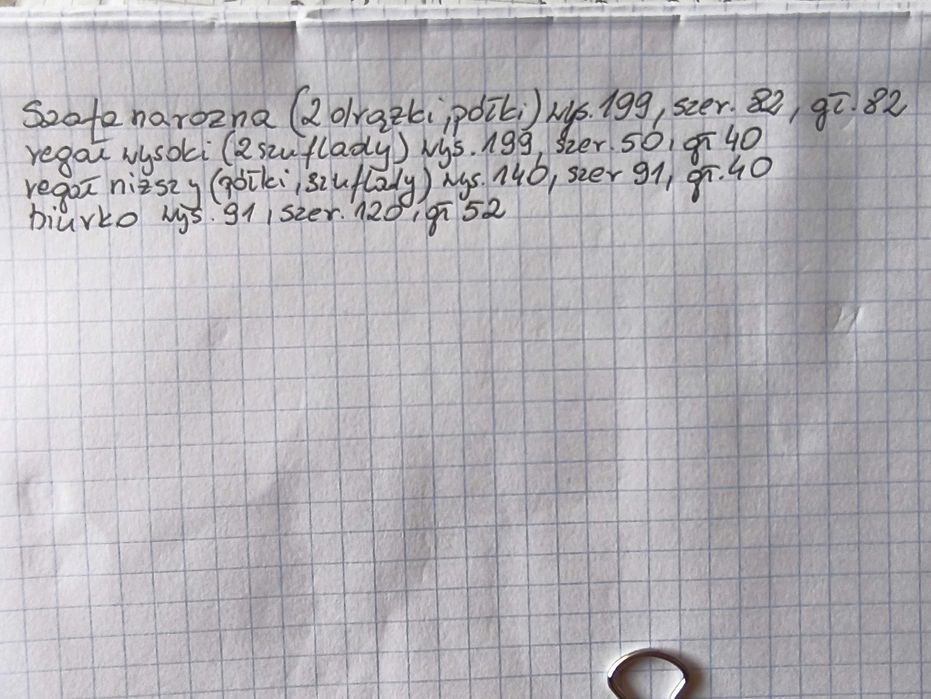 Szafa narożna (2 drążki, półki) wys. 199, szer. 82, gł. 82
regał wysoki (2 szuflady) wys. 199, szer. 50, gł 40
regał niższy (półki, szuflady) wys. 140, szer 91, gł. 40
biurko wys. 91, szer. 120, gł 52